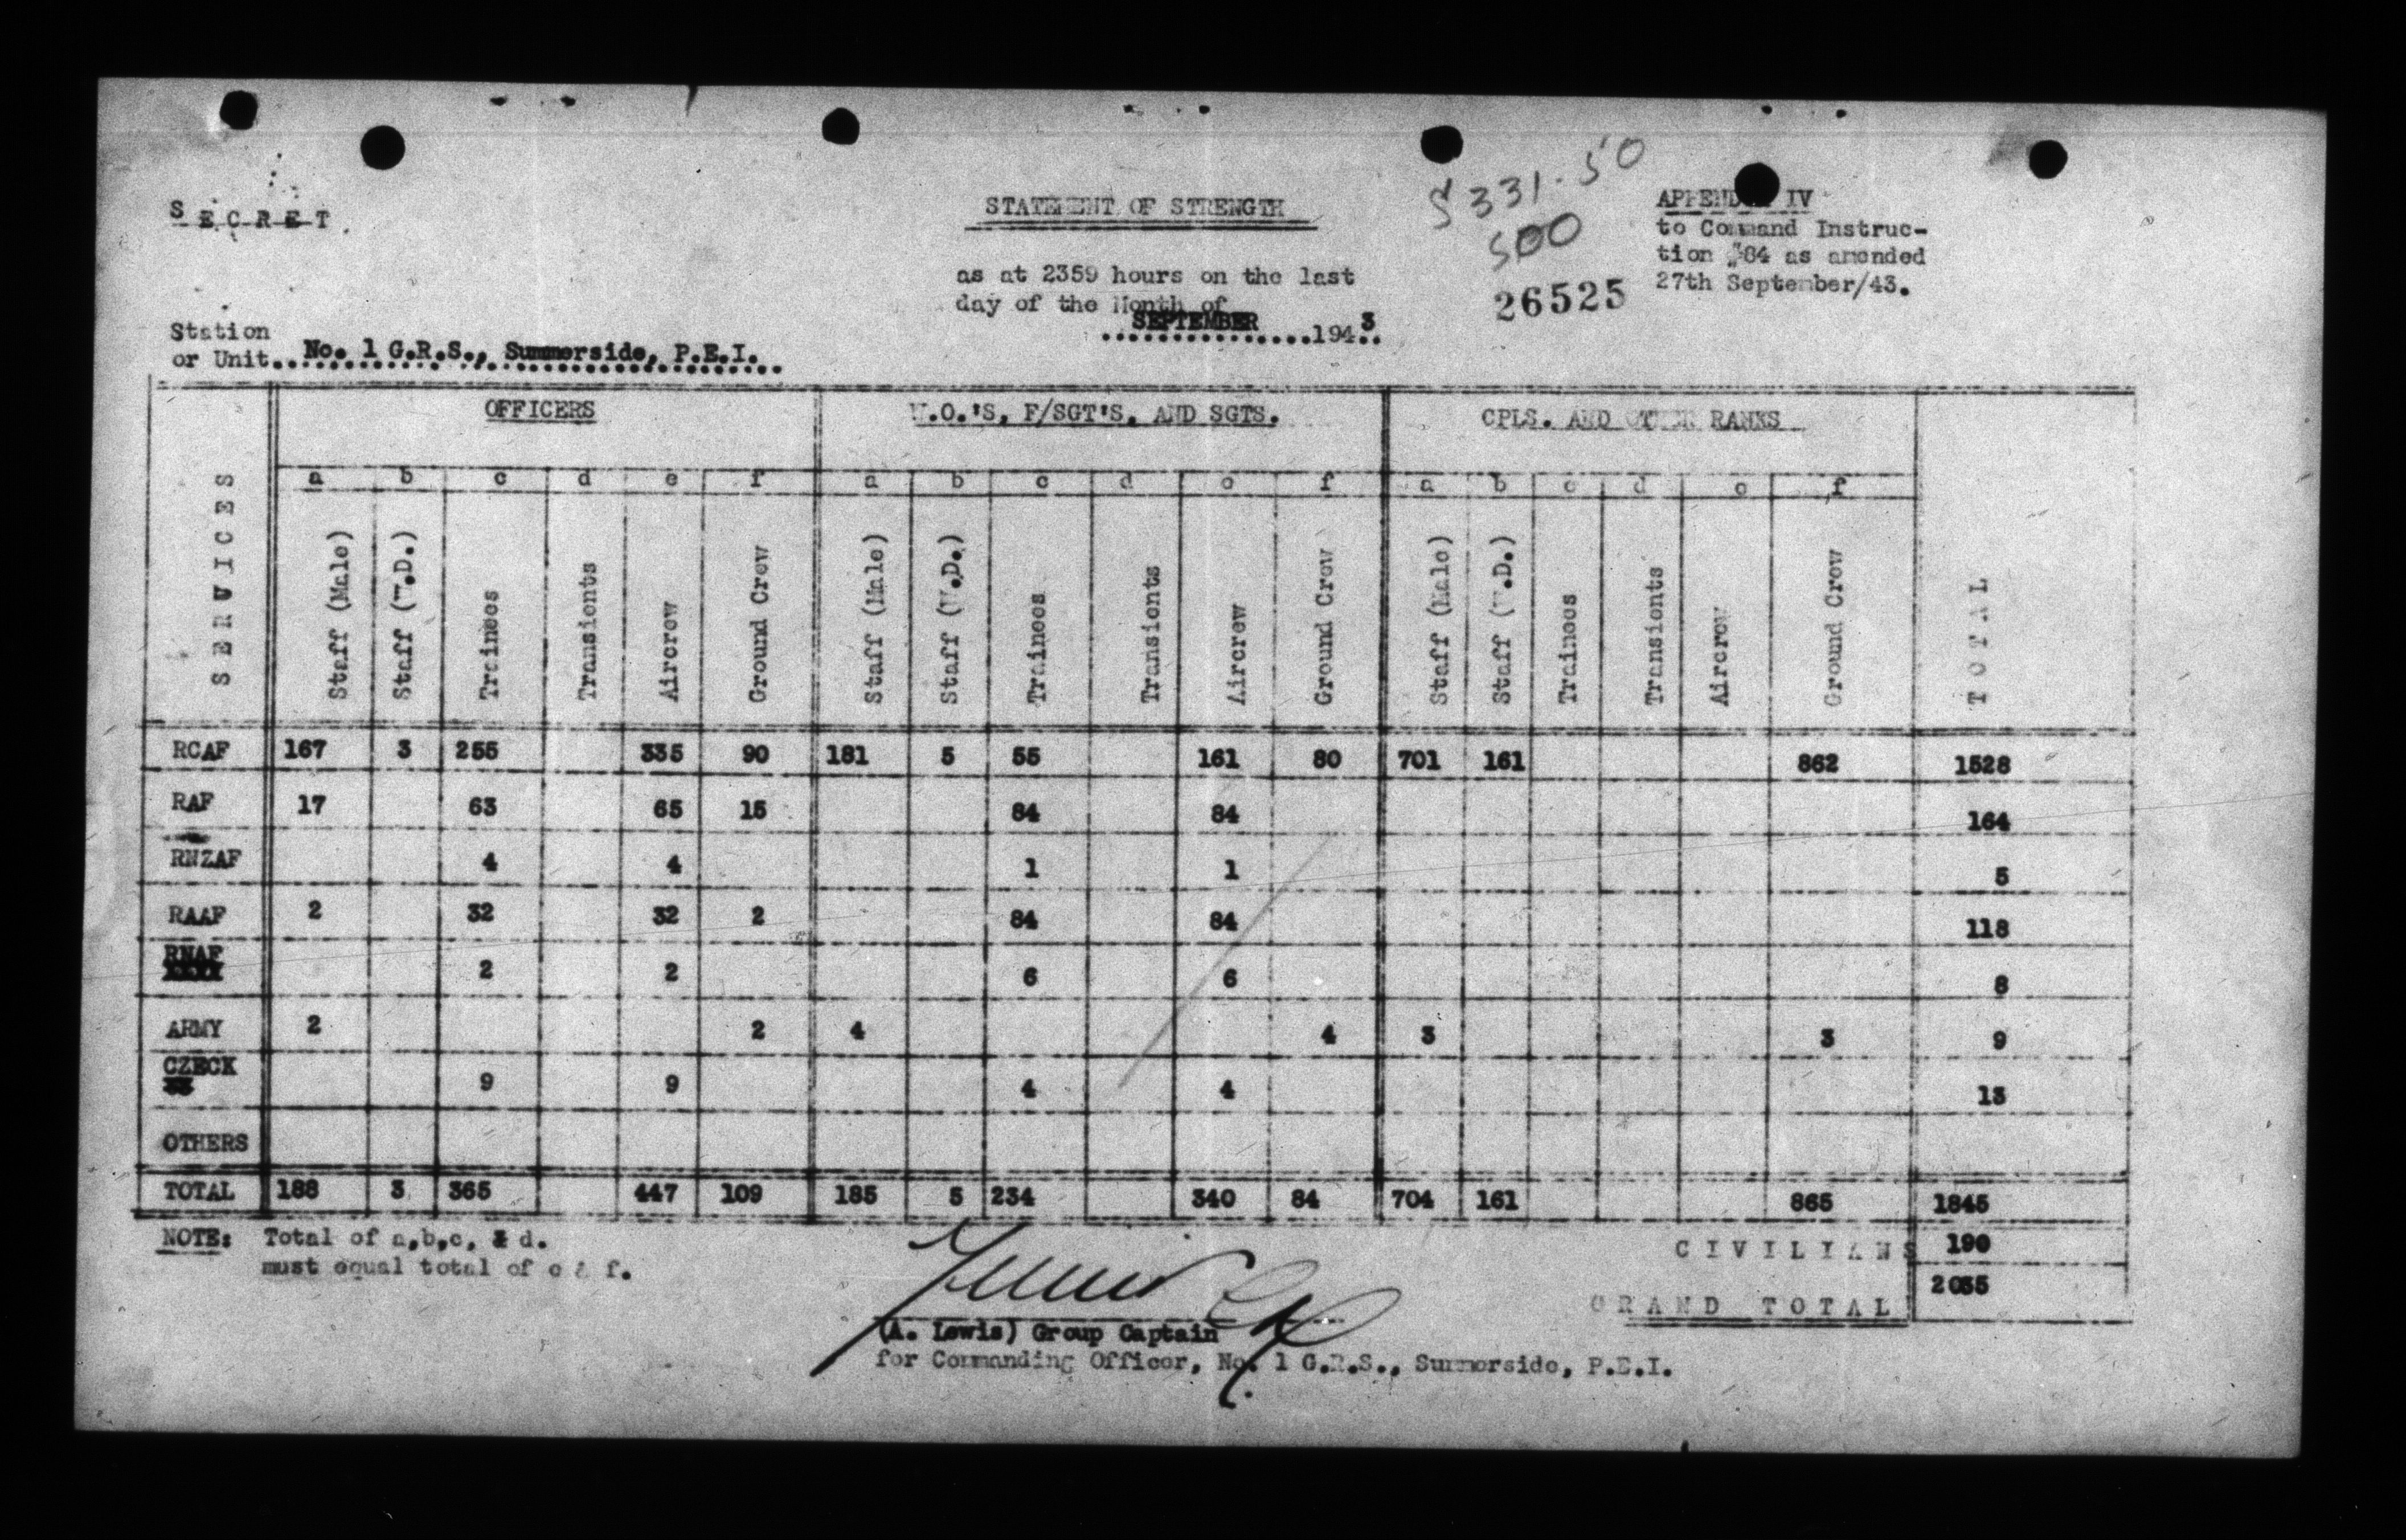 SECRET
STATEMENT OF STRENGTH
as at 2359 hours on the last
day of the Month of
SEPTEMBER 1943..
S 331-50
500
26525
APPENDIX IV
to Command Instruc-
tion #84 as amended
27th September/43.
Station
or Unit..No. 1 G.R.S., Summerside, P.E.I.
SERVICES OFFICERS W.O.'S, F/SGT'S, AND SGTS. CPLS. AND OTHER RANKS TOTAL
a b c d e f a b c d e f a b c d e f
Staff (Male) Staff (W.D.) Trainees Transients Aircrew Ground Crew Staff (Male) Staff (W.D.) Trainees Transients Aircrew Ground Crew Staff (Male) Staff (W.D.) Trainees Transients Aircrew Ground Crew
RCAF 167 3 255 335 90 181 5 55 161 80 701 161 862 1528
RAF 17 63 65 15 84 84 164
RNZAF 4 4 1 1 5
RAAF 2 32 32 2 84 84 118
RNAF 2 2 6 6 8
ARMY 2 2 4 4 3 3 9
CZECK 9 9 4 4 13
OTHERS
TOTAL 188 3 365 447 109 185 5 234 340 84 704 161 865 1845
NOTE: Total of a,b,c, & d.
must equal total of e & f.
CIVILIANS 190
GRAND TOTAL 2035
(A. Lewis) Group Captain
for Commanding Officer, No. 1 G.R.S., Summerside, P.E.I.